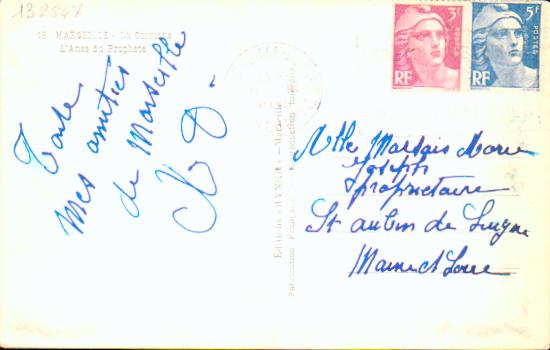 132847
18 MARSEILLE - La Corniche
L'Anse du Prophète
Toute
Mes amitiés
de Marseille
3F
POSTES
RF
5F
POSTES
RF
Editions - Marseille
Fabrication Française - Reproduction interdite
Mlle Marsais Marie
Joseph
propriétaire
St aubin de Luigné
Maine et Loire